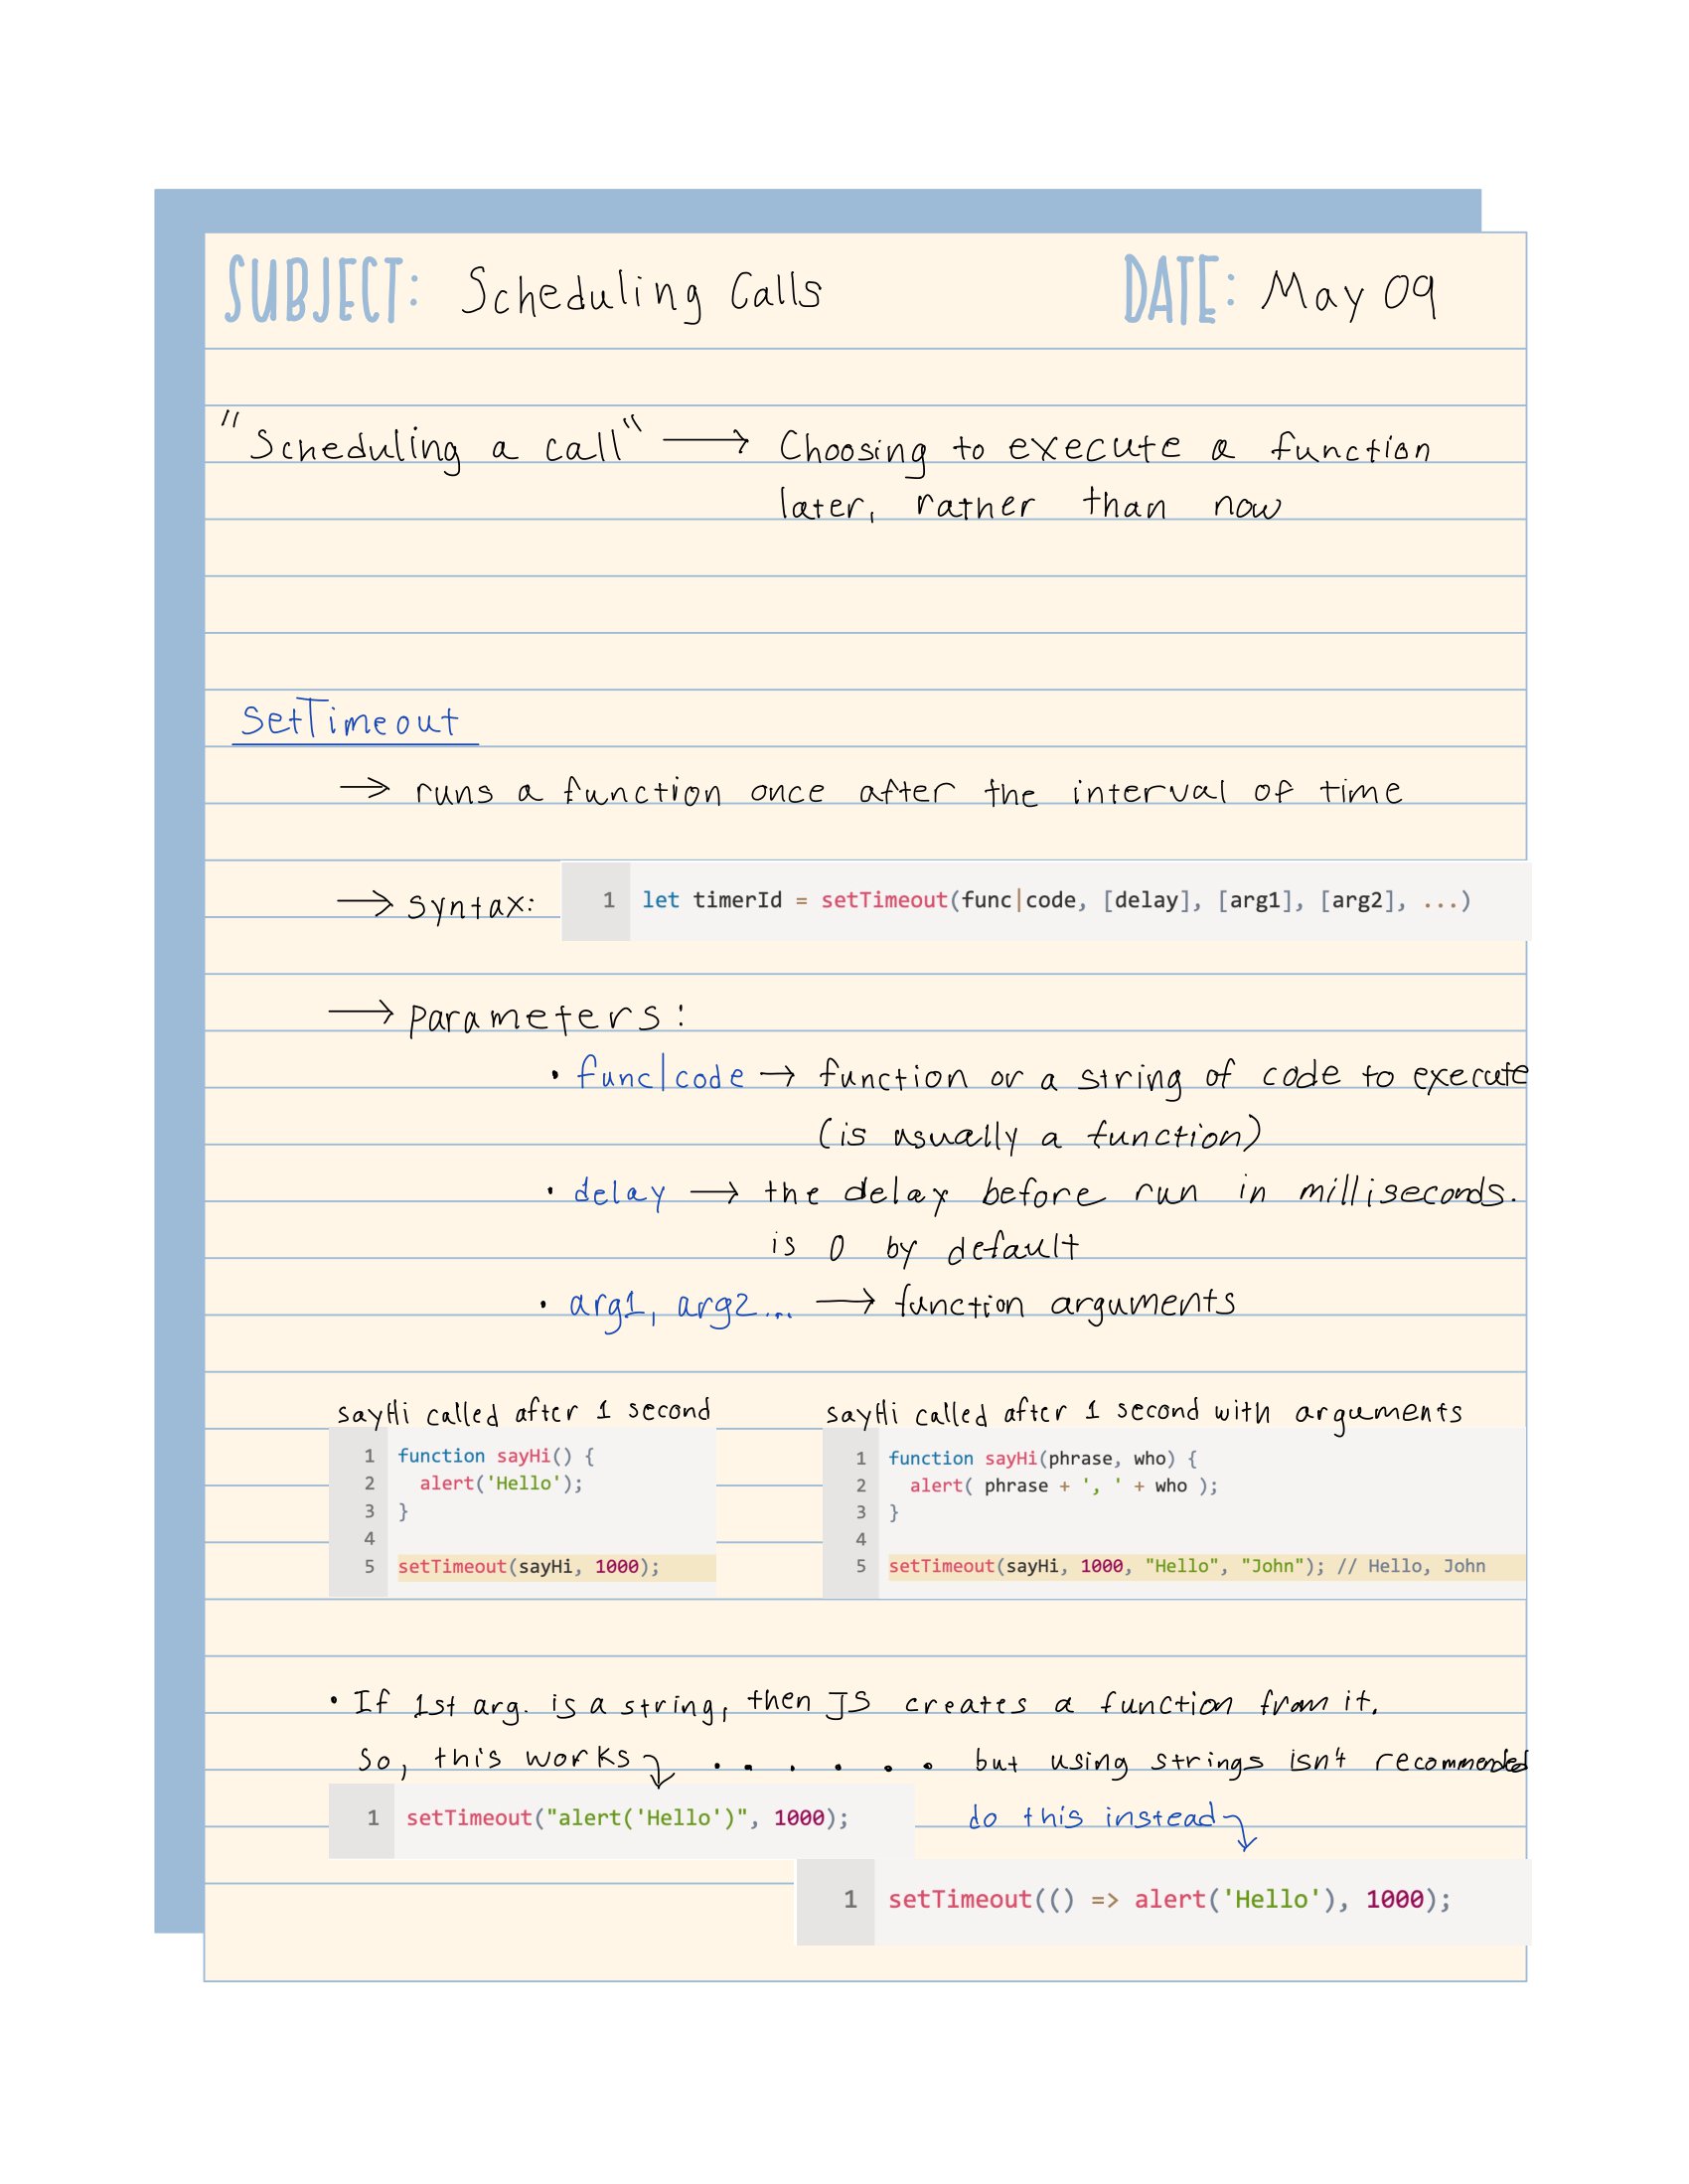 SUBJECT: Scheduling Calls DATE: May 09
"Scheduling a call" → Choosing to execute a function
later, rather than now
SetTimeout
→ runs a function once after the interval of time
→ syntax: 1 let timerId = setTimeout(func|code, [delay], [arg1], [arg2], ...)
→ parameters:
• func|code → function or a string of code to execute
(is usually a function)
• delay → the delay before run in milliseconds.
is 0 by default
• arg1, arg2... → function arguments
sayHi called after 1 second
1 function sayHi() {
2 alert('Hello');
3 }
4
5 setTimeout(sayHi, 1000);
sayHi called after 1 second with arguments
1 function sayHi(phrase, who) {
2 alert( phrase + ', ' + who );
3 }
4
5 setTimeout(sayHi, 1000, "Hello", "John"); // Hello, John
• If 1st arg. is a string, then JS creates a function from it.
So, this works . . . . . . but using strings isn't recommended
1 setTimeout("alert('Hello')", 1000);
do this instead
1 setTimeout(() => alert('Hello'), 1000);